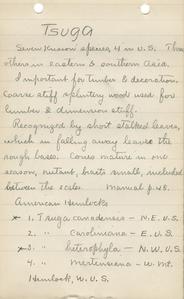 Tsuga
Seven known species, 4 in U.S. Three
others in eastern & southern Asia.
Important for timber & decoration.
Coarse stiff splintery wood used for
lumber & dimension stuff.
Recognized by short stalked leaves,
which in falling away leave the
rough bases. Cones mature in one
season, nutant, bracts small, included
between the scales. Manual p. 48.
American Hemlocks
× 1. Tsuga canadensis - N.E.U.S.
2. " Caroliniana - E.U.S.
× 3. " heterophylla - N.W.U.S.
4. " Mertensiana - W. Mt.
Hemlock, W.U.S.